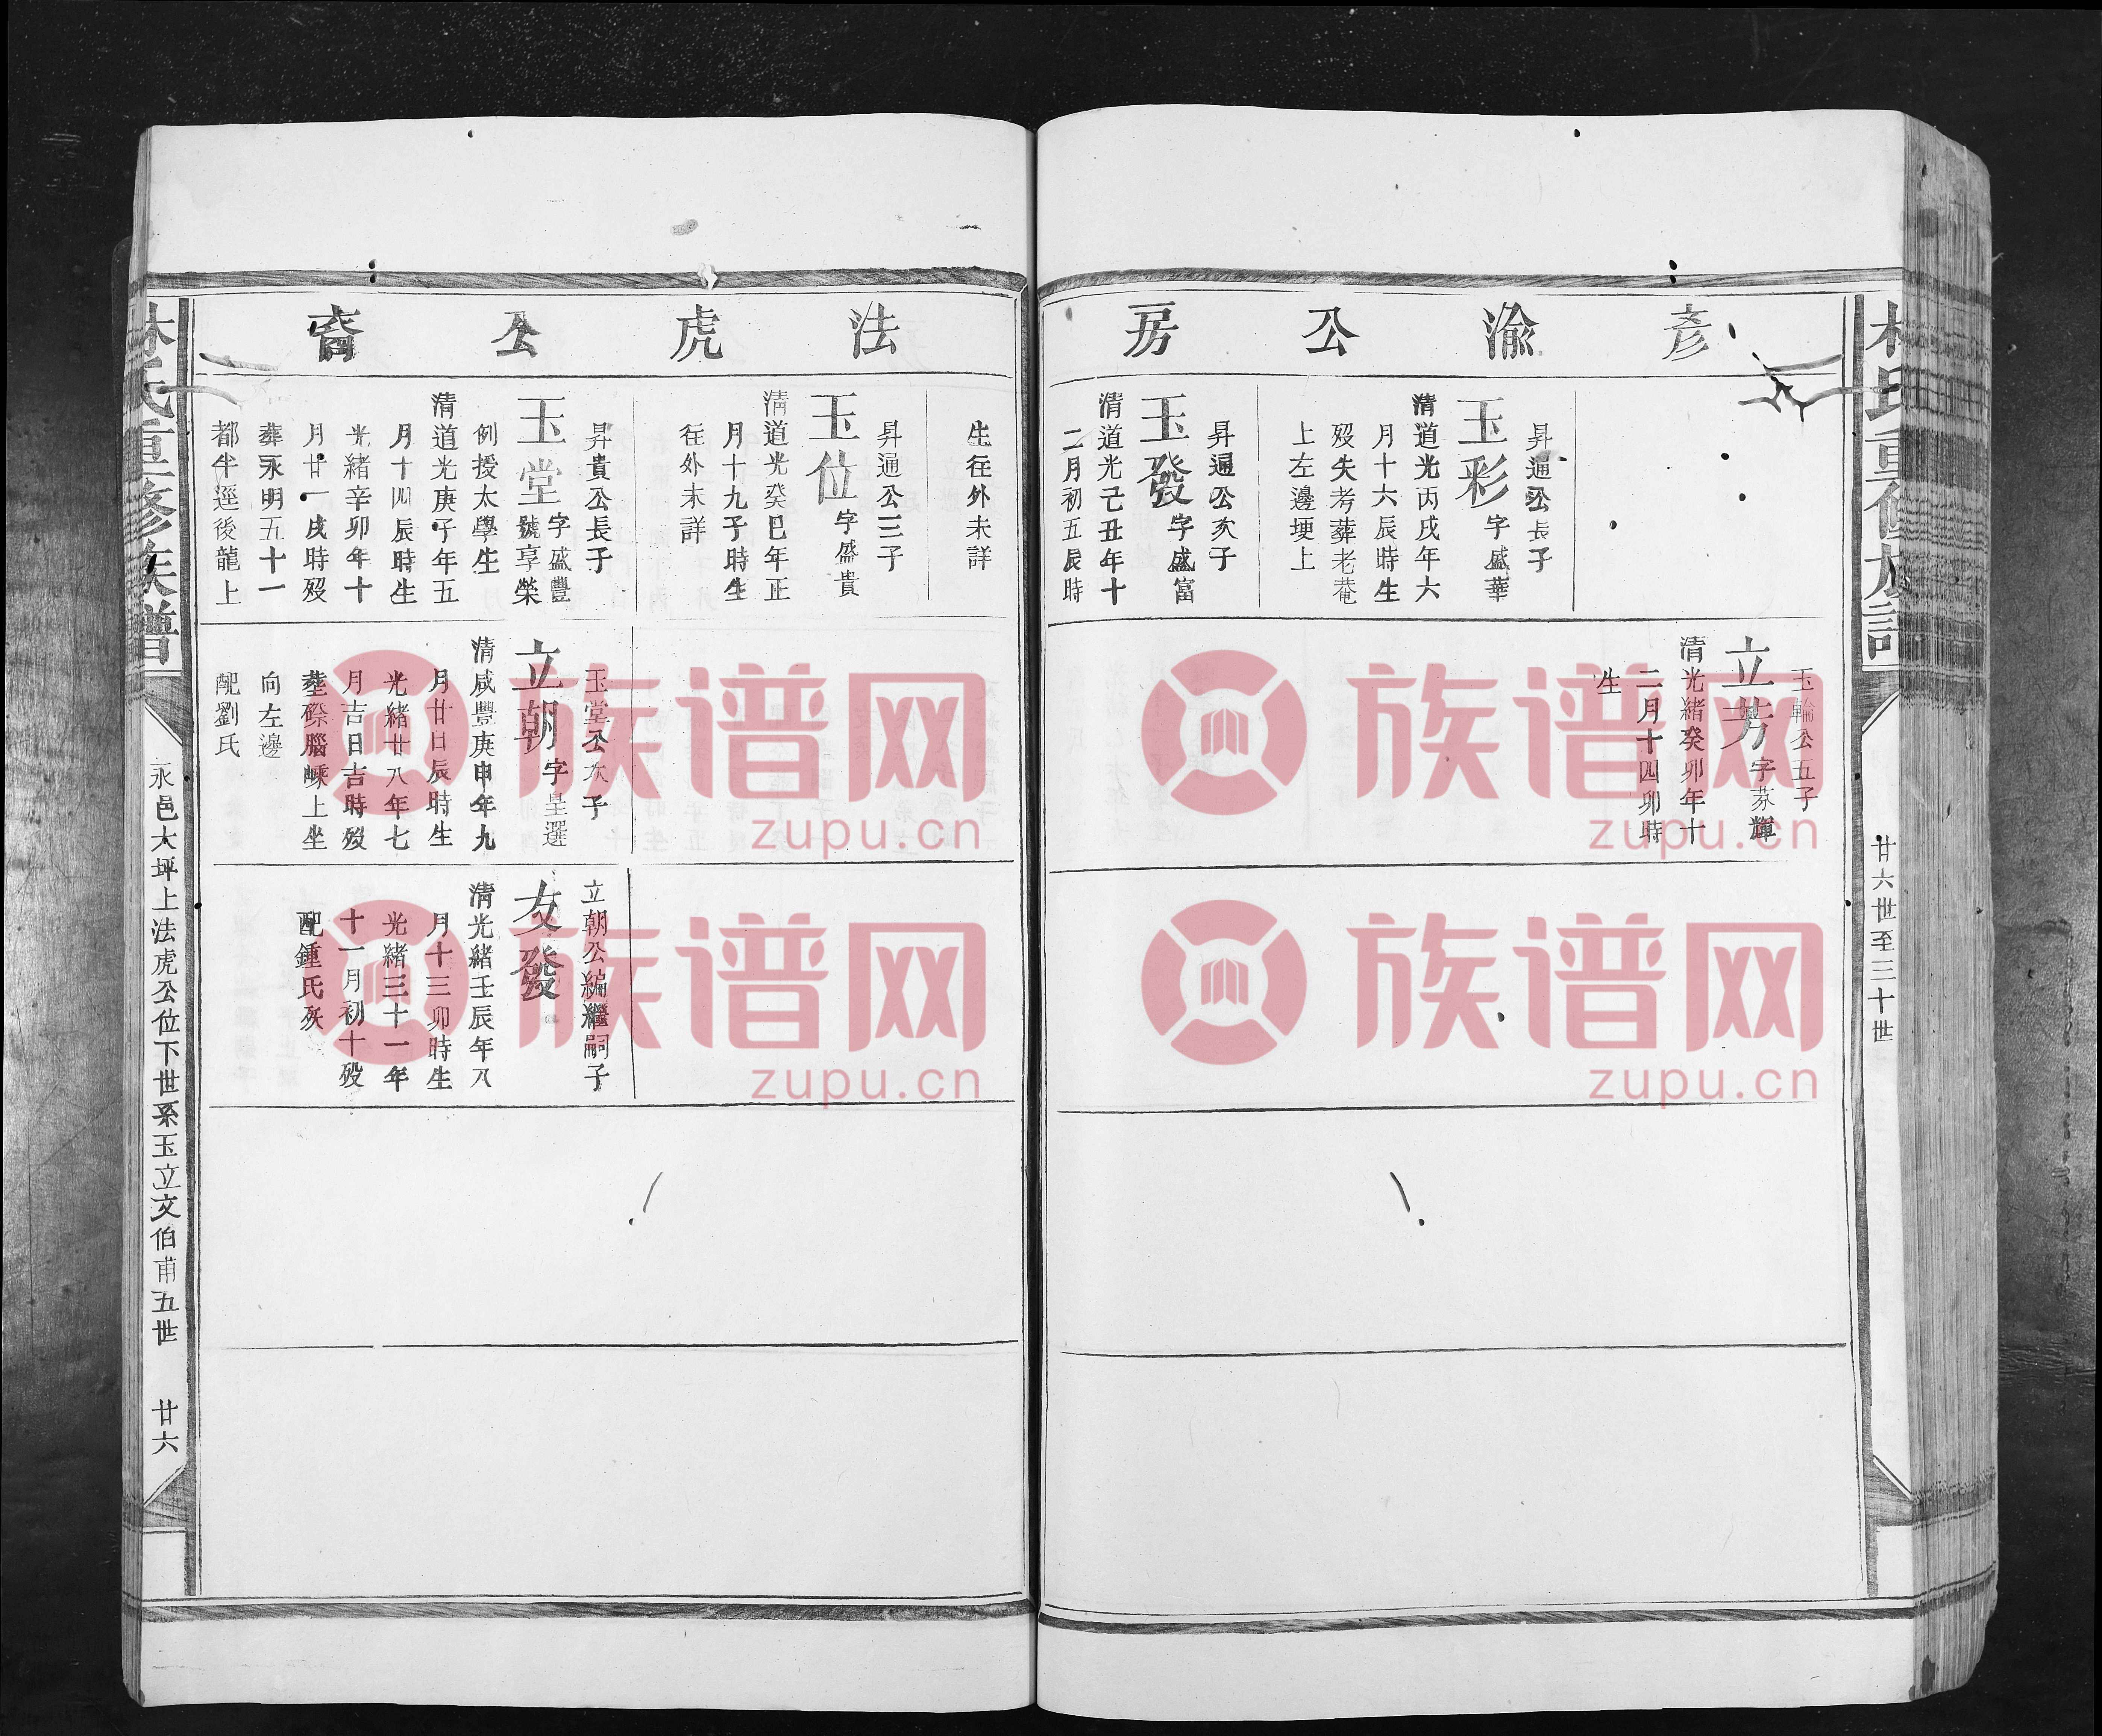 林氏重修族譜
廿六世至三十世
彥渝公房
昇通公長子
玉彩字盛華
清道光丙戌年六
月十六辰時生
歿失考葬老菴
上左邊埂上
昇通公次子
玉發字盛富
清道光己丑年十
二月初五辰時
玉輪公五子
立芳字芬輝
清光緒癸卯年十
二月十四卯時
生
法虎公裔
生往外未詳
昇通公三子
玉位字盛貴
清道光癸巳年正
月十九子時生
往外未詳
昇貴公長子
玉堂字盛豐號享榮
例授太學生
清道光庚子年五
月十四辰時生
光緒辛卯年十
月廿一戌時歿
葬永明五十一
都牛逕後龍上
玉堂公次子
立朝字皇選
清咸豐庚申年九
月廿日辰時生
光緒廿八年七
月吉日吉時歿
塟磜腦崠上坐
向左邊
配劉氏
立朝公編繼嗣子
文發
清光緒壬辰年八
月十三卯時生
光緒三十一年
十一月初十歿
配鍾氏
林氏重修族譜
永邑大坪上法虎公位下世系玉立文伯甫五世
廿六
族谱网
zupu.cn
族谱网
zupu.cn
族谱网
zupu.cn
族谱网
zupu.cn